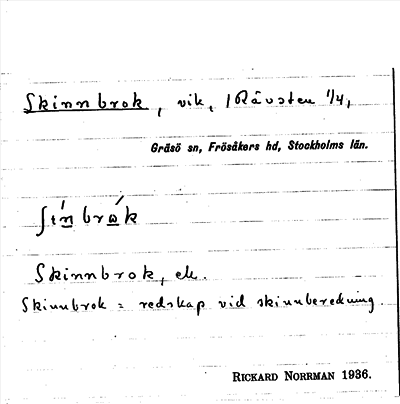 Skinnbrok, vik, / Råvsten 1/4,
Gräsö sn, Frösåkers hd, Stockholms län.
ʃinbrωk
Skinnbrok, ek.
Skinnbrok = redskap vid skinnberedning.
RICKARD NORRMAN 1936.